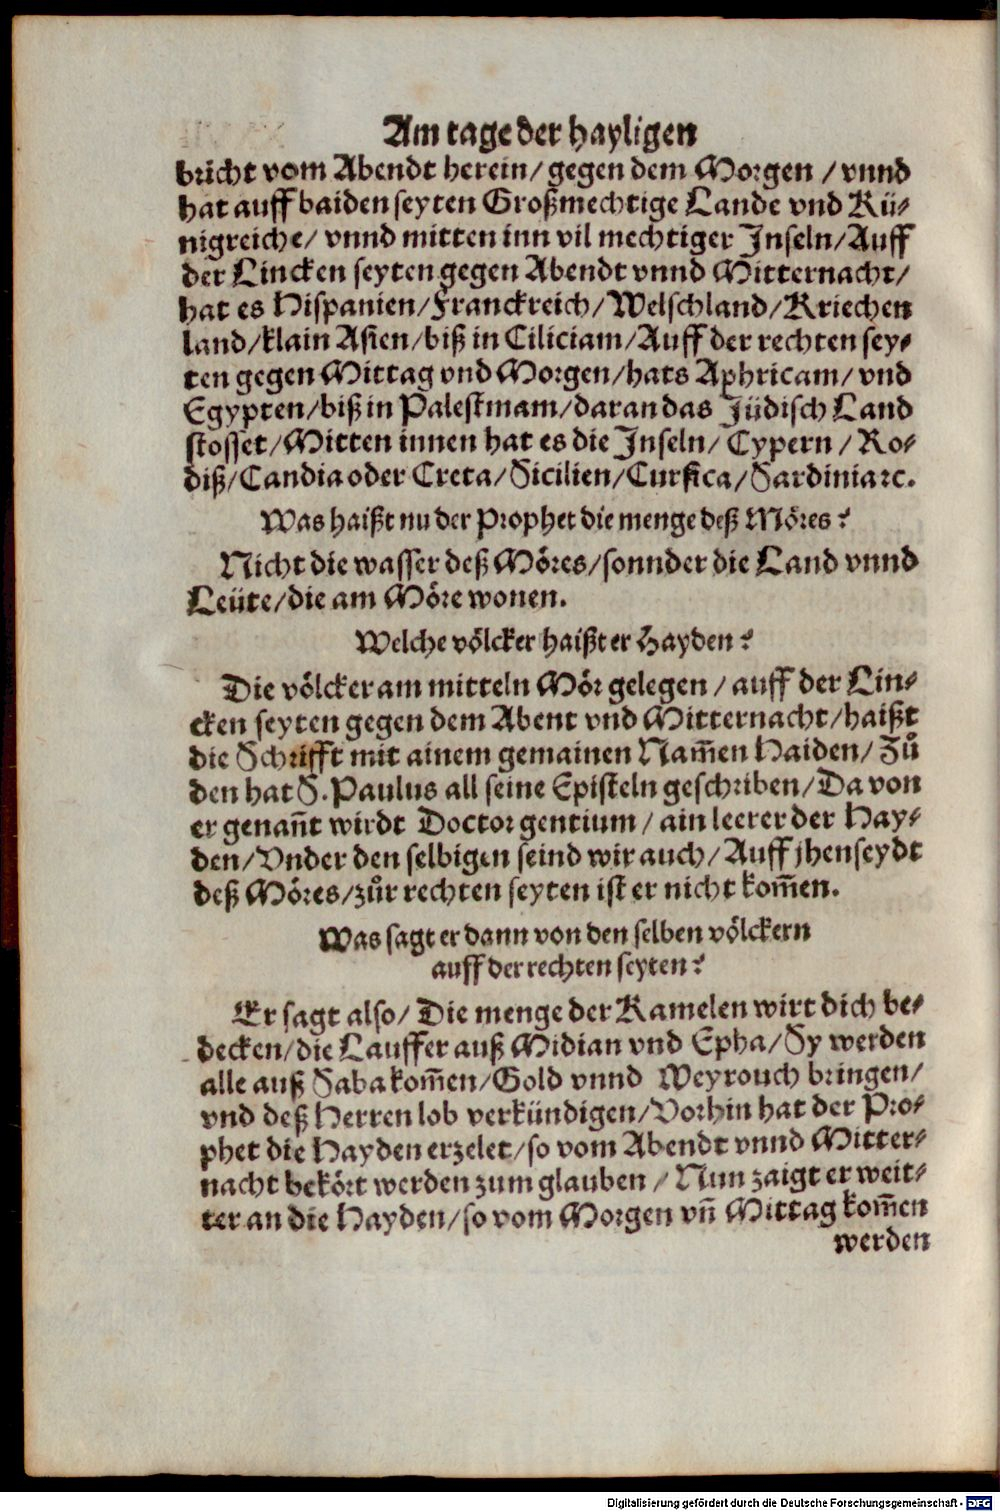 Am tage der hayligen
bricht vom Abendt herein/ gegen dem Morgen / vnnd
hat auff baiden seyten Großmechtige Lande vnd Kü-
nigreiche/ vnnd mitten inn vil mechtiger Inseln/ Auff
der Lincken seyten gegen Abendt vnnd Mitternacht/
hat es Hispanien/ Franckreich/ Welschland/ Kriechen
land/ klain Asien/ biß in Ciliciam/ Auff der rechten sey-
ten gegen Mittag vnd Morgen/ hats Aphricam/ vnd
Egypten/ biß in Palestinam/ daran das Jüdisch Land
stosset/ Mitten innen hat es die Inseln/ Cypern / Ro-
diß/ Candia oder Creta/ Sicilien/ Cursica/ Sardinia ꝛc.
Was haißt nu der Prophet die menge deß Möres?
Nicht die wasser deß Möres/ sonnder die Land vnnd
Leüte/ die am Möre wonen.
Welche völcker haißt er Hayden?
Die völcker am mitteln Mör gelegen / auff der Lin-
cken seyten gegen dem Abent vnd Mitternacht/ haißt
die Schrifft mit ainem gemainen Nam̃en Haiden/ Zů
den hat S. Paulus all seine Episteln geschriben/ Da von
er genañt wirdt Doctor gentium / ain leerer der Hay-
den/ Vnder den selbigen seind wir auch/ Auff jhenseydt
deß Möres/ zůr rechten seyten ist er nicht kom̃en.
Was sagt er dann von den selben völckern
auff der rechten seyten?
Er sagt also/ Die menge der Kamelen wirt dich be-
decken/ die Lauffer auß Midian vnd Epha/ Sy werden
alle auß Saba kom̃en/ Gold vnnd Weyrouch bringen/
vnd deß Herren lob verkündigen/ Vorhin hat der Pro-
phet die Hayden erzelet/ so vom Abendt vnnd Mitter-
nacht bekört werden zum glauben / Nun zaigt er weit-
ter an die Hayden/ so vom Morgen vñ Mittag kom̃en
werden
Digitalisierung gefördert durch die Deutsche Forschungsgemeinschaft - DFG